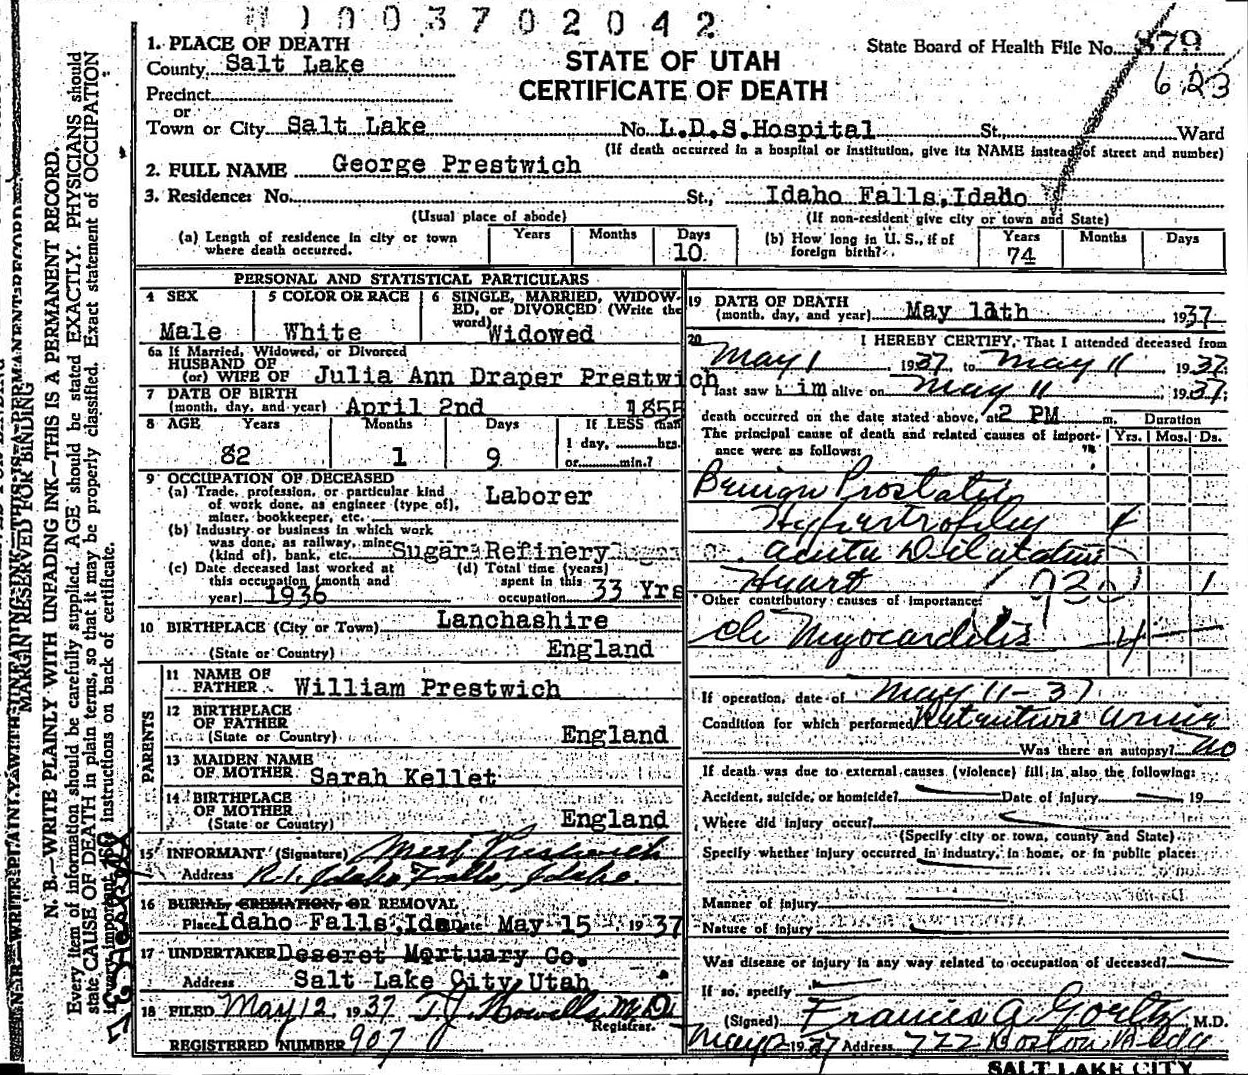 1003702042
1. PLACE OF DEATH
County Salt Lake
Precinct
or
Town or City Salt Lake No. L.D.S. Hospital St., Ward
(If death occurred in a hospital or institution, give its NAME instead of street and number)
STATE OF UTAH
CERTIFICATE OF DEATH
State Board of Health File No. 879
623
2. FULL NAME George Prestwich
3. Residence: No. St., Idaho Falls, Idaho
(Usual place of abode) (If non-resident give city or town and State)
(a) Length of residence in city or town where death occurred. Years Months Days 10
(b) How long in U. S., if of foreign birth? Years 74 Months Days
PERSONAL AND STATISTICAL PARTICULARS
4 SEX Male
5 COLOR OR RACE White
6 SINGLE, MARRIED, WIDOWED, or DIVORCED (Write the word) Widowed
6a If Married, Widowed, or Divorced
HUSBAND OF
(or) WIFE OF Julia Ann Draper Prestwich
7 DATE OF BIRTH
(month, day, and year) April 2nd 1855
8 AGE Years 82 Months 1 Days 9 If LESS than 1 day, hrs. or min.?
9 OCCUPATION OF DECEASED
(a) Trade, profession, or particular kind of work done, as engineer (type of), miner, bookkeeper, etc. Laborer
(b) Industry or business in which work was done, as railway, mine (kind of), bank, etc. Sugar Refinery
(c) Date deceased last worked at this occupation (month and year) 1936
(d) Total time (years) spent in this occupation 33 Yrs
10 BIRTHPLACE (City or Town) Lanchashire
(State or Country) England
PARENTS
11 NAME OF FATHER William Prestwich
12 BIRTHPLACE OF FATHER
(State or Country) England
13 MAIDEN NAME OF MOTHER Sarah Kellet
14 BIRTHPLACE OF MOTHER
(State or Country) England
15 INFORMANT (Signature) Prestwich
Address R.1. Idaho Falls, Idaho.
16 BURIAL, CREMATION, OR REMOVAL
Place Idaho Falls, Ida Date May 15 1937
17 UNDERTAKER Deseret Mortuary Co.
Address Salt Lake City, Utah
18 FILED May 12 1937 T. J. Howells M.D.
Registrar.
REGISTERED NUMBER 907
19 DATE OF DEATH
(month, day, and year) May 11th 1937
20 I HEREBY CERTIFY, That I attended deceased from
May 1 1937, to May 11 1937;
I last saw him alive on May 11 1937;
death occurred on the date stated above, at 2 PM m.
Duration
Yrs. Mos. Ds.
The principal cause of death and related causes of importance were as follows:
Benign Prostatic
Hypertrophy 4
acute Dilatation
Heart 1
Other contributory causes of importance:
Ch Myocarditis 4
If operation, date of May 11-37
Condition for which performed
Was there an autopsy? no
If death was due to external causes (violence) fill in also the following:
Accident, suicide, or homicide? Date of injury 19
Where did injury occur?
(Specify city or town, county and State)
Specify whether injury occurred in industry, in home, or in public place:
Manner of injury
Nature of injury
Was disease or injury in any way related to occupation of deceased?
If so, specify
(Signed) Francis G. Goeltz M.D.
May 12 1937 Address 722 Boston Bldg
SALT LAKE CITY
MARGIN RESERVED FOR BINDING
N. B.—WRITE PLAINLY WITH UNFADING INK—THIS IS A PERMANENT RECORD.
Every item of information should be carefully supplied. AGE should be stated EXACTLY. PHYSICIANS should
state CAUSE OF DEATH in plain terms, so that it may be properly classified. Exact statement of OCCUPATION
is very important. instructions on back of certificate.